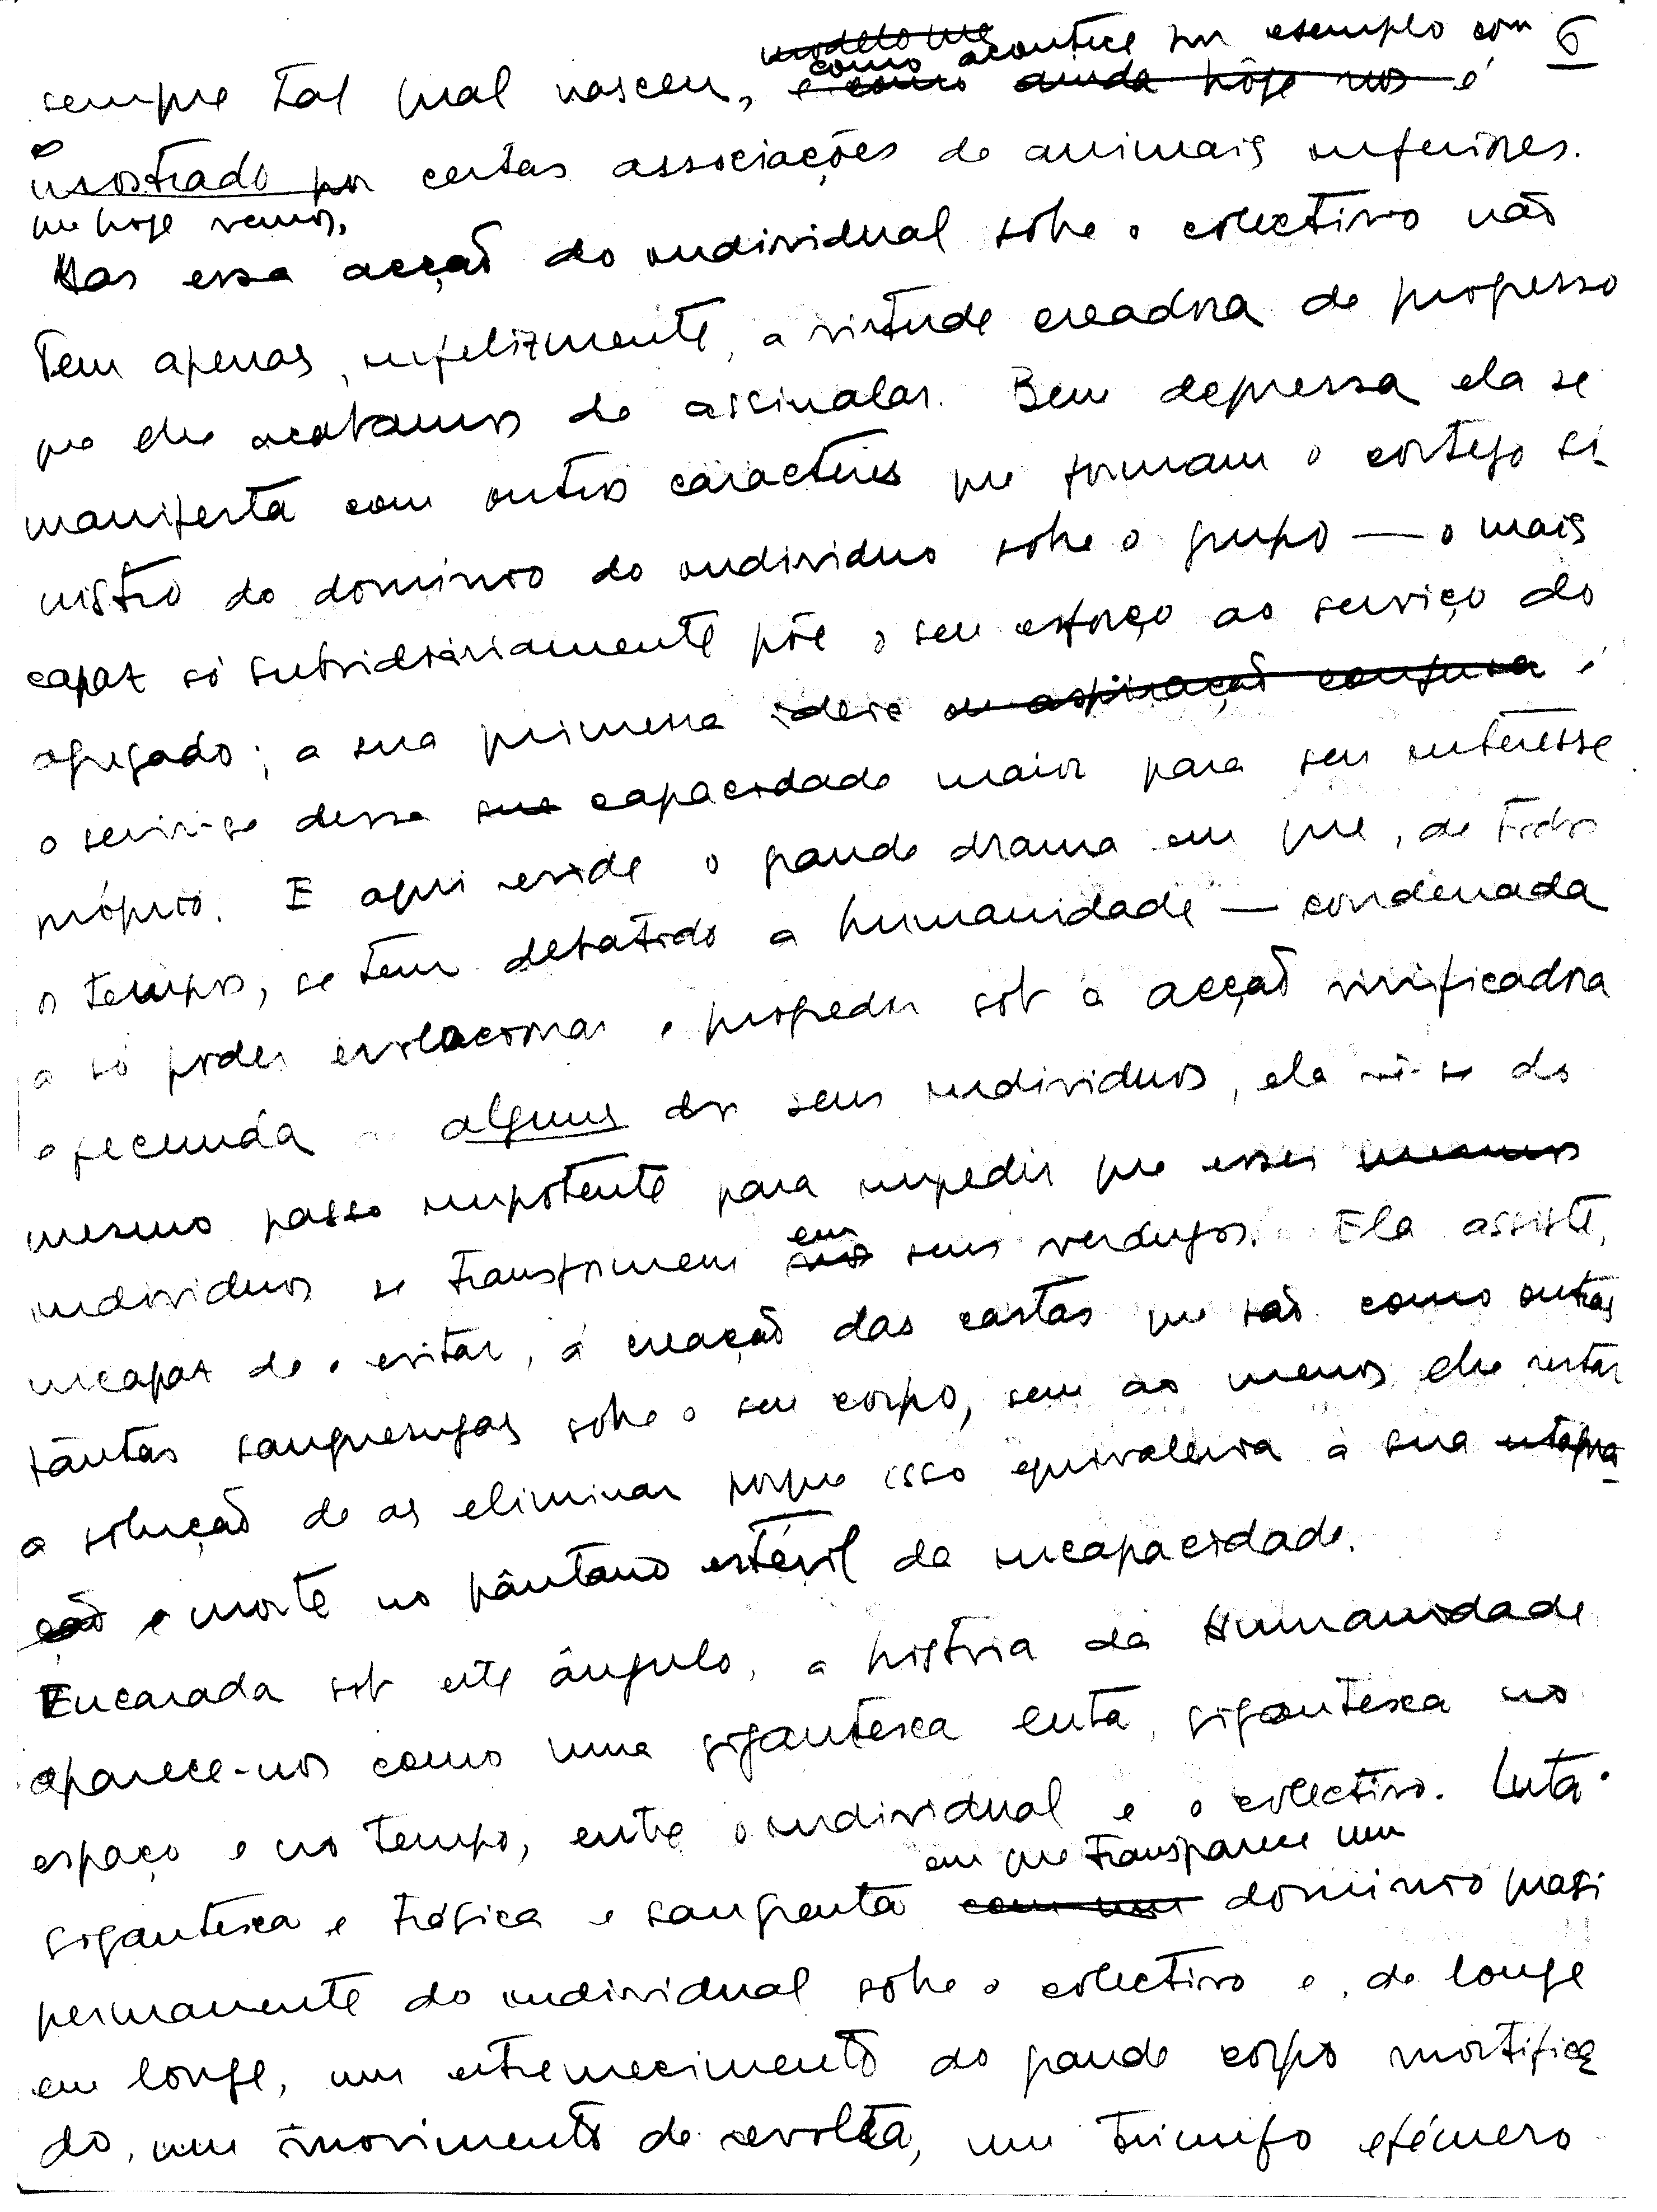 modelo me
como acontece por exemplo com 6
sempre tal qual nasceu, e como ainda hoje nos é
mostrado por certas associações de animais inferiores.
que hoje vemos.
Mas essa acção do individual sobre o colectivo não
tem apenas, infelizmente, a virtude creadora de progresso
que lhe acabamos de assinalar. Bem depressa ela se
manifesta com outros caracteres que formam o cortejo si-
nistro do domínio do individuo sobre o grupo — o mais
capaz só subsidiàriamente põe o seu esforço ao serviço do
agregado; a sua primeira ideia ou aspiração confusa é
o servir-se dessa sua capacidade maior para seu interesse
próprio. E aqui reside o grande drama em que, de todos
os tempos, se tem debatido a humanidade — condenada
a só poder evolucionar e progredir sob a acção vivificadora
e fecunda alguns dos seus individuos, ela vê-se do
mesmo passo impotente para impedir que esses mesmos
individuos se transformem em nos seus verdugos. Ela assiste,
incapaz de o evitar, á creação das castas que são como outras
tântas sanguesugas sobre o seu corpo, sem ao menos lhe restar
a solução de as eliminar porque isso equivaleria à sua estagna-
ção e morte no pântano estéril da incapacidade.
Encarada sob este ângulo, a história da Humanidade
aparece-nos como uma gigantesca luta, gigantesca no
espaço e no tempo, entre o individual e o colectivo. Luta
em que transparece um
gigantesca e trágica e sangrenta com um domínio quasi
permanente do individual sobre o colectivo e, de longe
em longe, um estremecimento do grande corpo mortifica
do, um movimento de revolta, um triunfo efémero